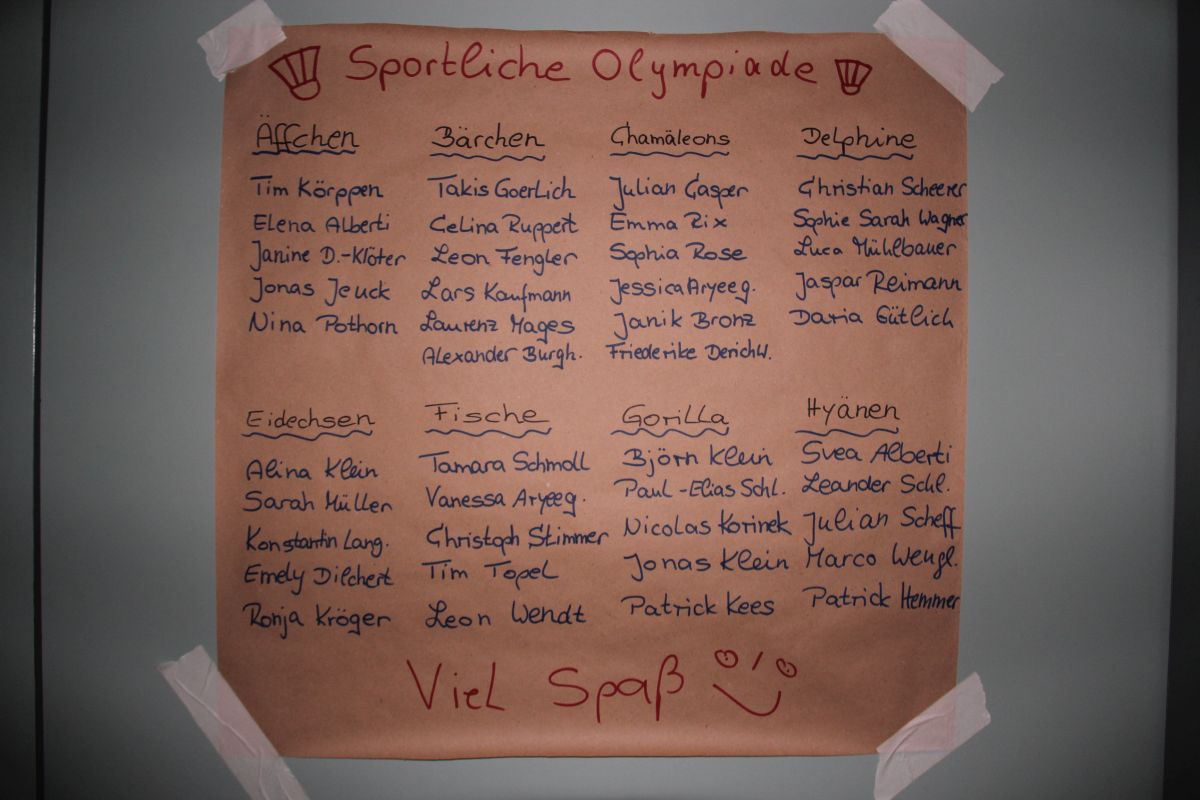 Sportliche Olympiade
Äffchen
Tim Körppen
Elena Alberti
Janine D.-Klöter
Jonas Jeuck
Nina Pothorn
Bärchen
Takis Goerlich
Celina Ruppert
Leon Fengler
Lars Kaufmann
Laurenz Mages
Alexander Burgh.
Chamäleons
Julian Casper
Emma Rix
Sophia Rose
Jessica Aryeeg.
Janik Bronz
Friederike Derichw.
Delphine
Christian Scheerer
Sophie Sarah Wagner
Luca Mühlbauer
Jaspar Reimann
Daria Gütlich
Eidechsen
Alina Klein
Sarah Müller
Konstantin Lang.
Emely Dilchert
Ronja Kröger
Fische
Tamara Schmoll
Vanessa Aryeeg.
Christoph Stimmer
Tim Topel
Leon Wendt
Gorilla
Björn Klein
Paul-Elias Schl.
Nicolas Korinek
Jonas Klein
Patrick Kees
Hyänen
Svea Alberti
Leander Schl.
Julian Scheff
Marco Wengl.
Patrick Hemmer
Viel Spaß